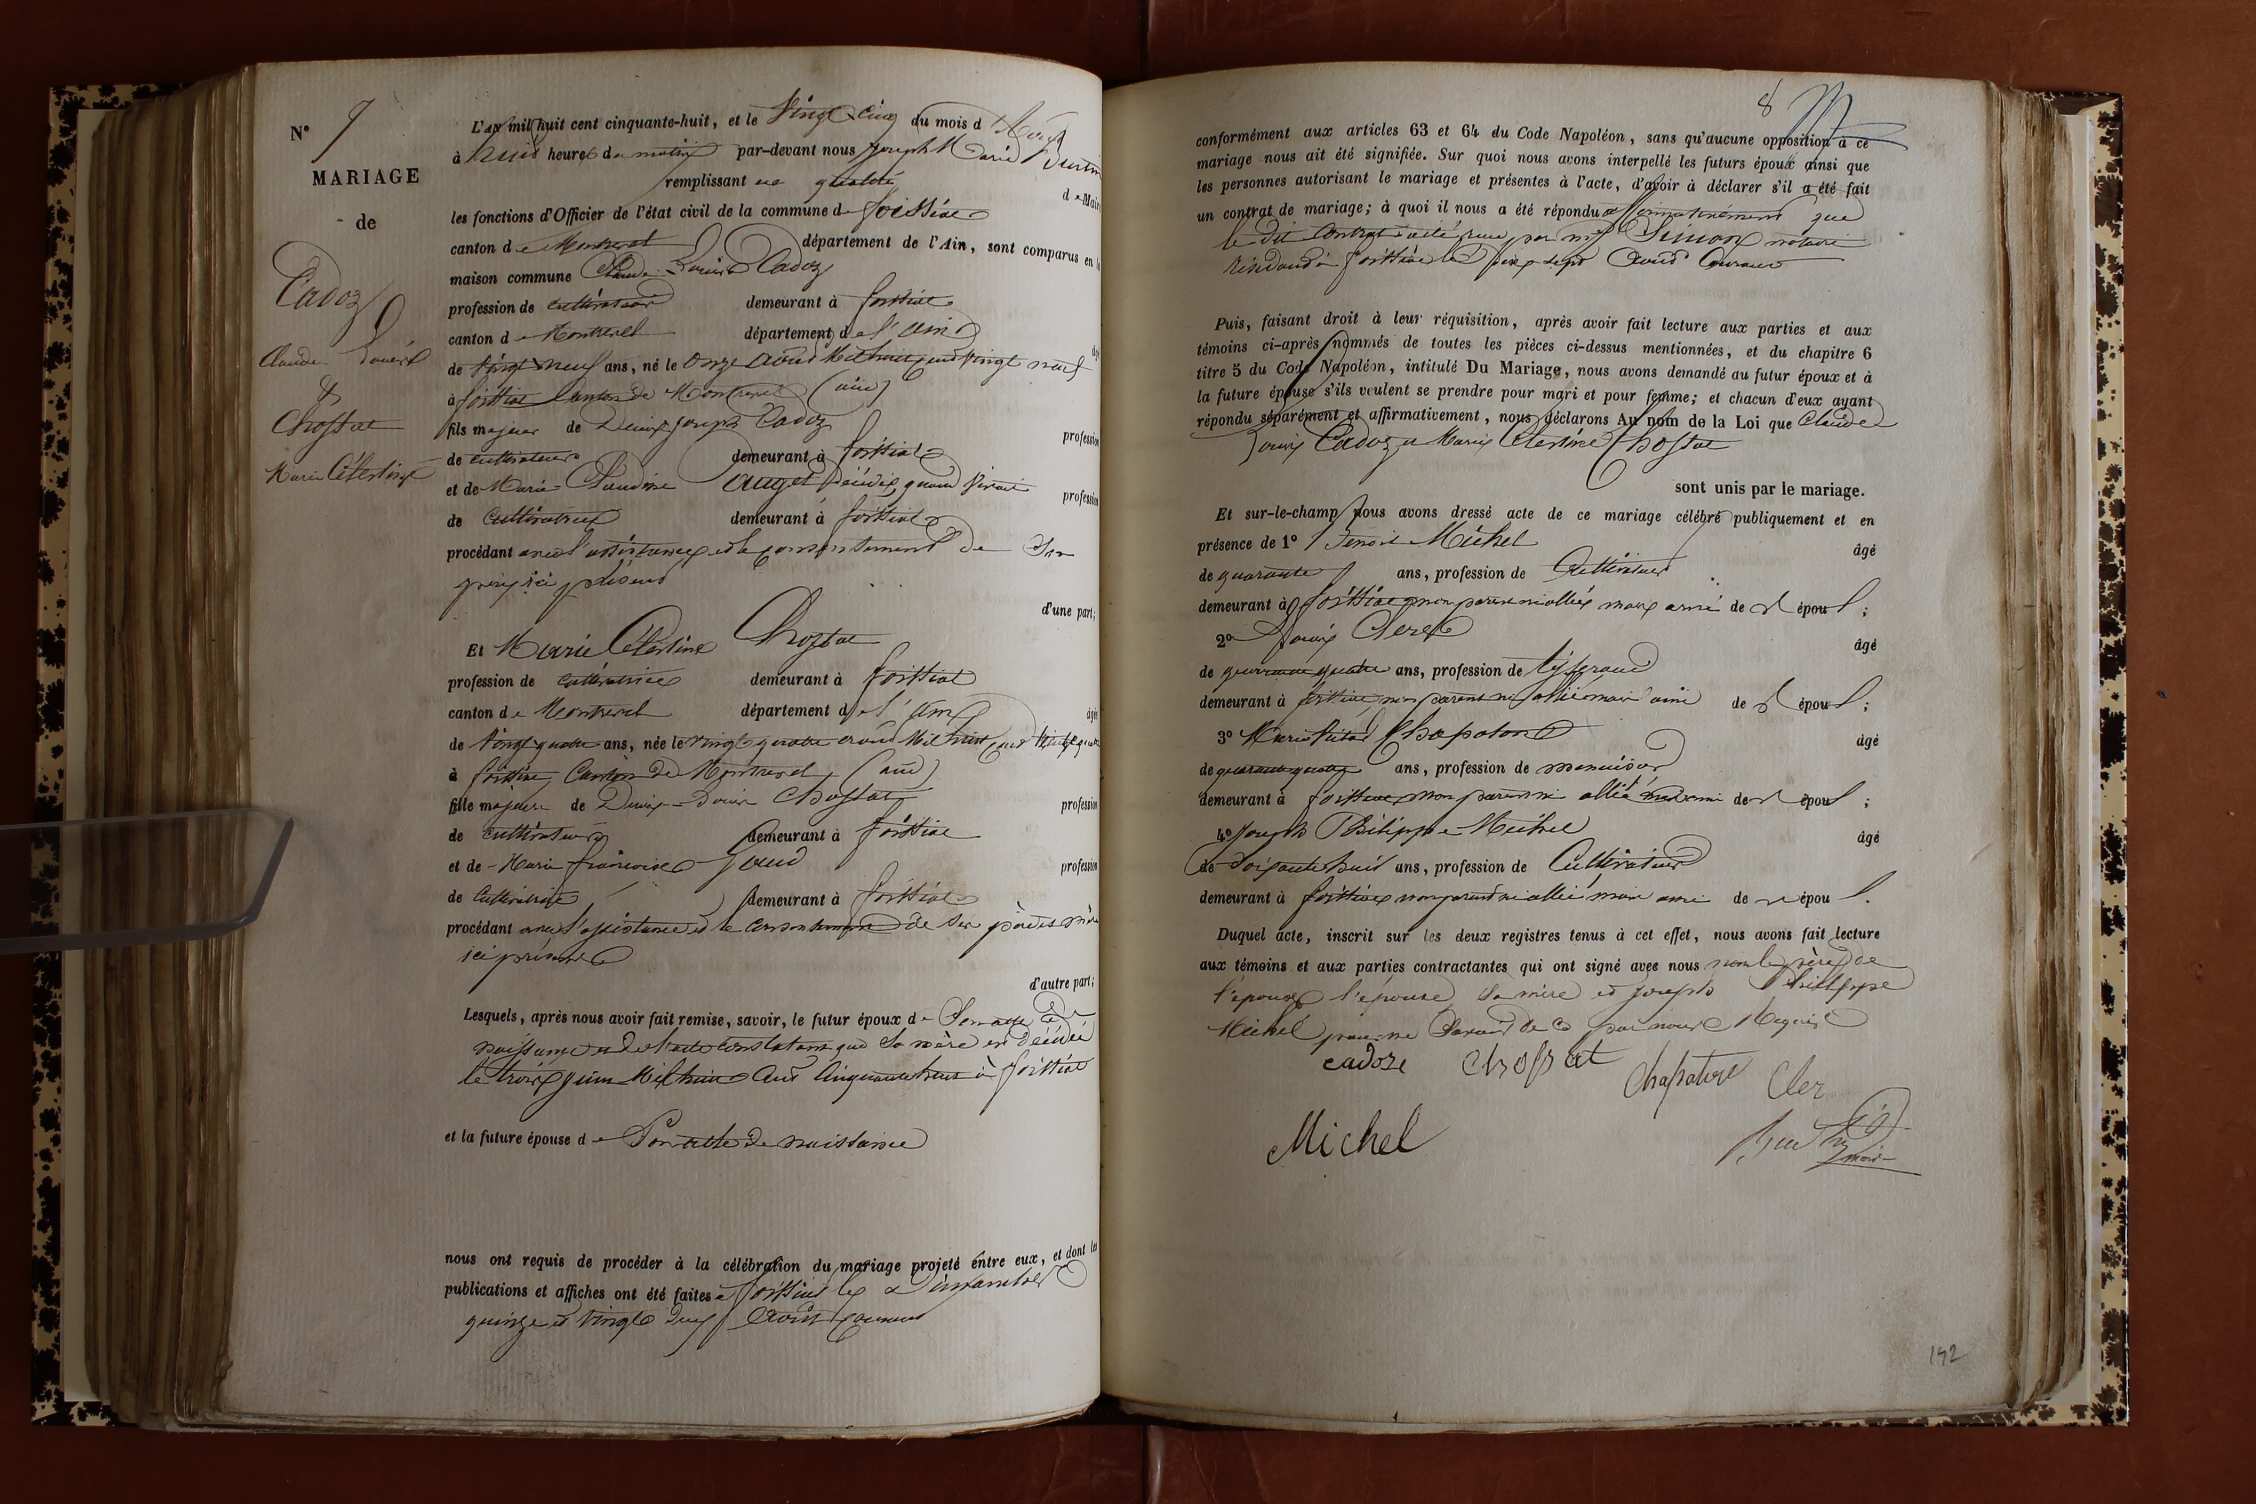 N° 9
MARIAGE
de
Cadoz
Claude Louis
&
Chossat
Marie Célestine
L'an mil huit cent cinquante-huit, et le Vingt Cinq du mois d'Août
à huit heures du matin par-devant nous Joseph Marie
remplissant en qualité de Maire
les fonctions d'Officier de l'état civil de la commune de foissiat
canton de Montrevel département de l'Ain, sont comparus en la
maison commune Claude Louis Cadoz
profession de cultivateur demeurant à foissiat
canton de Montrevel département de l'ain âgé
de vingt neuf ans, né le onze août Mil huit cent vingt neuf
à foissiat Canton de Montrevel (ain)
fils majeur de Denis Joseph Cadoz profession
de cultivateur demeurant à foissiat
et de Marie Claudine décédée, quand vivait profession
de cultivatrice demeurant à foissiat
procédant avec l'assistance et le consentement de son
père ici présent
d'une part;
Et Marie Célestine Chossat
profession de cultivatrice demeurant à foissiat
canton de Montrevel département de l'ain âgée
de vingt quatre ans, née le vingt quatre août Mil huit cent trente quatre
à foissiat Canton de Montrevel (ain)
fille majeure de Denis Louis Chossat profession
de cultivateur demeurant à foissiat
et de Marie françoise profession
de Cultivatrice demeurant à foissiat
procédant avec l'assistance et le consentement de ses père et mère
ici présents
d'autre part;
Lesquels, après nous avoir fait remise, savoir, le futur époux de Son acte de
naissance et de l'acte constatant que sa mère est décédée
le trois juin Mil huit Cent Cinquante à foissiat
et la future épouse de Son acte de naissance
nous ont requis de procéder à la célébration du mariage projeté entre eux, et dont les
publications et affiches ont été faites à foissiat les Dimanches
quinze et vingt deux Août courant
8
conformément aux articles 63 et 64 du Code Napoléon, sans qu'aucune opposition à ce
mariage nous ait été signifiée. Sur quoi nous avons interpellé les futurs époux ainsi que
les personnes autorisant le mariage et présentes à l'acte, d'avoir à déclarer s'il a été fait
un contrat de mariage; à quoi il nous a été répondu affirmativement que
le dit Contrat a été reçu par me Simon notaire
résidant à foissiat le dix sept Août Courant
Puis, faisant droit à leur réquisition, après avoir fait lecture aux parties et aux
témoins ci-après nommés de toutes les pièces ci-dessus mentionnées, et du chapitre 6
titre 5 du Code Napoléon, intitulé Du Mariage, nous avons demandé au futur époux et à
la future épouse s'ils veulent se prendre pour mari et pour femme; et chacun d'eux ayant
répondu séparément et affirmativement, nous déclarons Au nom de la Loi que Claude
Louis Cadoz et Marie Célestine Chossat
sont unis par le mariage.
Et sur-le-champ nous avons dressé acte de ce mariage célébré publiquement et en
présence de 1° Benoit Michel âgé
de quarante ans, profession de Cultivateur
demeurant à foissiat non parent ni allié mais ami de l'époux;
2° Louis Clerc âgé
de quarante quatre ans, profession de tisserand
demeurant à foissiat non parent ni allié mais ami de l'époux;
3° Marie Chapaton âgé
de quarante quatre ans, profession de menuisier
demeurant à foissiat non parent ni allié mais ami de l'époux;
4° Joseph Philippe Michel âgé
de Soixante huit ans, profession de Cultivateur
demeurant à foissiat non parent ni allié mais ami de l'époux.
Duquel acte, inscrit sur les deux registres tenus à cet effet, nous avons fait lecture
aux témoins et aux parties contractantes qui ont signé avec nous non le père de
l'époux l'épouse sa mère et Joseph Philippe
Michel pour ne Savoir de ce par nous Requis
cadoz chossat chapaton Cler
Michel
maire
142